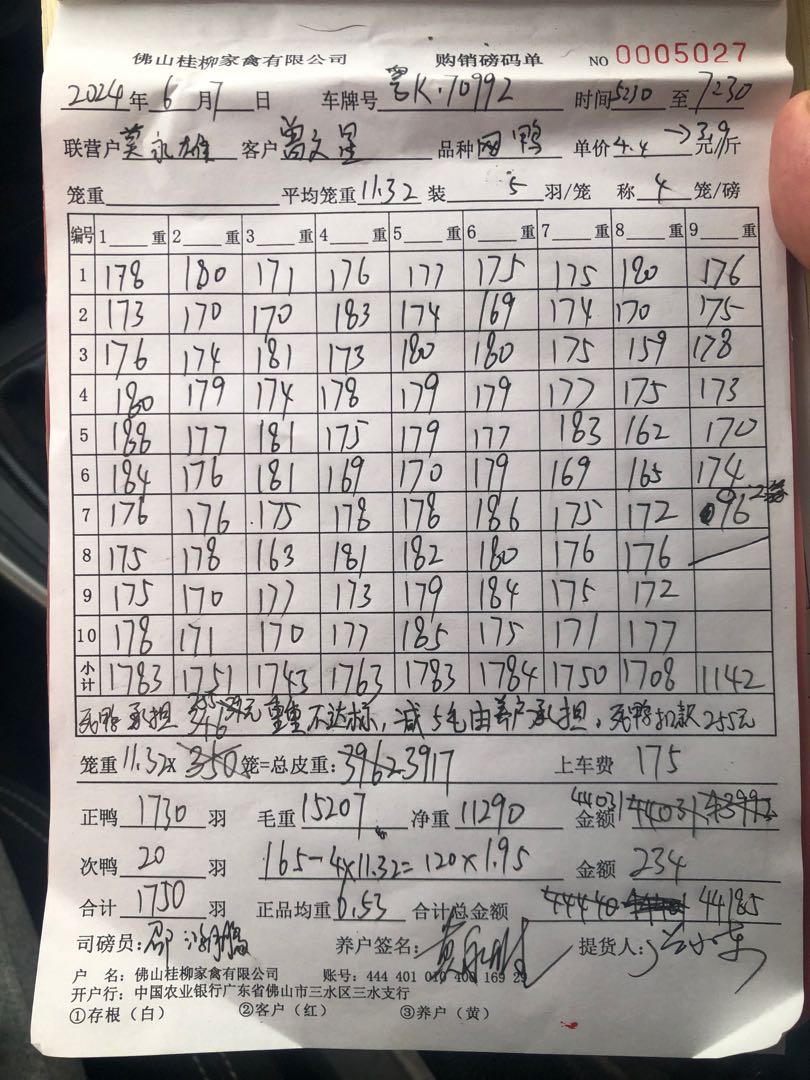 佛山桂柳家禽有限公司 购销磅码单 NO 0005027
2024年6月7日 车牌号 粤K·70992 时间 5:30 至 7:30
联营户 莫永雄 客户 曾文星 品种 网鸭 单价 4.4→3.9 元/斤
笼重 平均笼重 11.32 装 5 羽/笼 称 4 笼/磅
编号 1 重 2 重 3 重 4 重 5 重 6 重 7 重 8 重 9 重
1 178 180 171 176 177 175 175 180 176
2 173 170 170 183 174 169 174 170 175
3 176 174 181 173 180 180 175 159 178
4 180 179 174 178 179 179 177 175 173
5 188 177 181 175 179 177 183 162 170
6 184 176 181 169 170 179 169 165 174
7 176 176 175 178 178 186 175 172 96 2笼
8 175 178 163 181 182 180 176 176
9 175 170 177 173 179 184 175 172
10 178 171 170 177 185 175 171 177
小计 1783 1751 1743 1763 1783 1784 1750 1708 1142
死鸭承担 重量不达标，减5毛由养户承担，死鸭扣款255元
笼重 11.32× 350 笼=总皮重: 3962 3917 上车费 175
正鸭 1730 羽 毛重 15207 净重 11290 金额 44031 44031
次鸭 20 羽 165-4×11.32=120×1.95 金额 234
合计 1750 羽 正品均重 6.53 合计总金额 44440 44185
司磅员: 养户签名: 提货人:
户 名: 佛山桂柳家禽有限公司 账号: 444 401 010 400 169 29
开户行: 中国农业银行广东省佛山市三水区三水支行
①存根（白） ②客户（红） ③养户（黄）